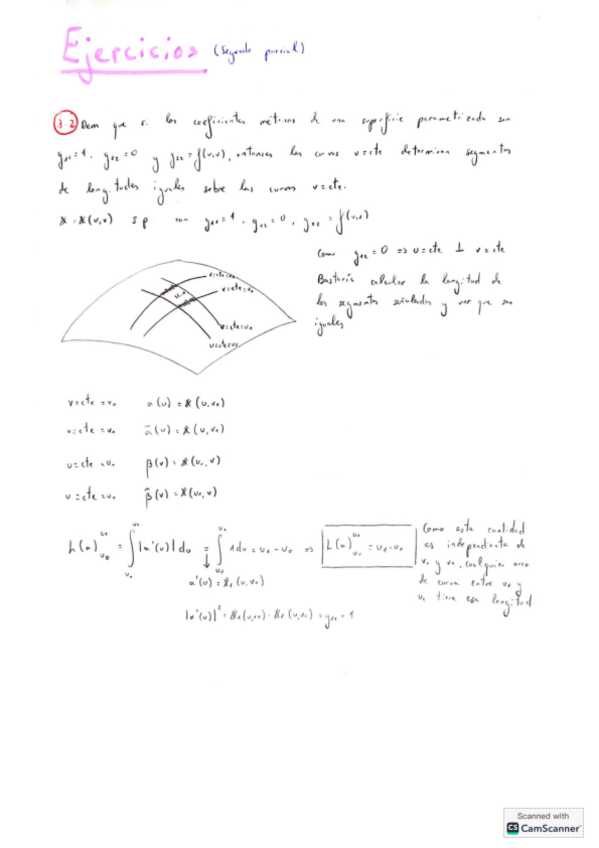 Ejercicios (segundo parcial)
3.2 Dem que si los coeficientes métricos de una superficie parametrizada son
g₁₁=1, g₁₂=0 y g₂₂=f(u,v), entonces las curvas u=cte determinan segmentos
de longitudes iguales sobre las curvas v=cte.
𝕏=𝕏(u,v) s.p. con g₁₁=1, g₁₂=0, g₂₂=f(u,v)
Como g₁₂=0 ⇒ u=cte ⊥ v=cte
Bastaría calcular la longitud de
los segmentos señalados y ver que son
iguales
v=cte=v₁
v=cte=v₀
u=cte=u₀
v=cte=v₀ α(u)=𝕏(u,v₀)
v=cte=v₁ α̃(u)=𝕏(u,v₁)
u=cte=u₀ β(v)=𝕏(u₀,v)
u=cte=u₁ β̃(v)=𝕏(u₁,v)
L(α)ᵤ₀ᵘ¹ = ∫ᵤ₀ᵘ¹ |α'(u)| du = ∫ᵤ₀ᵘ¹ 1 du = u₁-u₀ ⇒ L(α)ᵤ₀ᵘ¹ = u₁-u₀
α'(u)=𝕏₁(u,v₀)
|α'(u)|²=𝕏₁(u,v₀)·𝕏₁(u,v₀)=g₁₁=1
Como esta cantidad
es independiente de
v₀ y v₁, cualquier arco
de curva entre u₀ y
u₁ tiene esa longitud
Scanned with
CS CamScanner